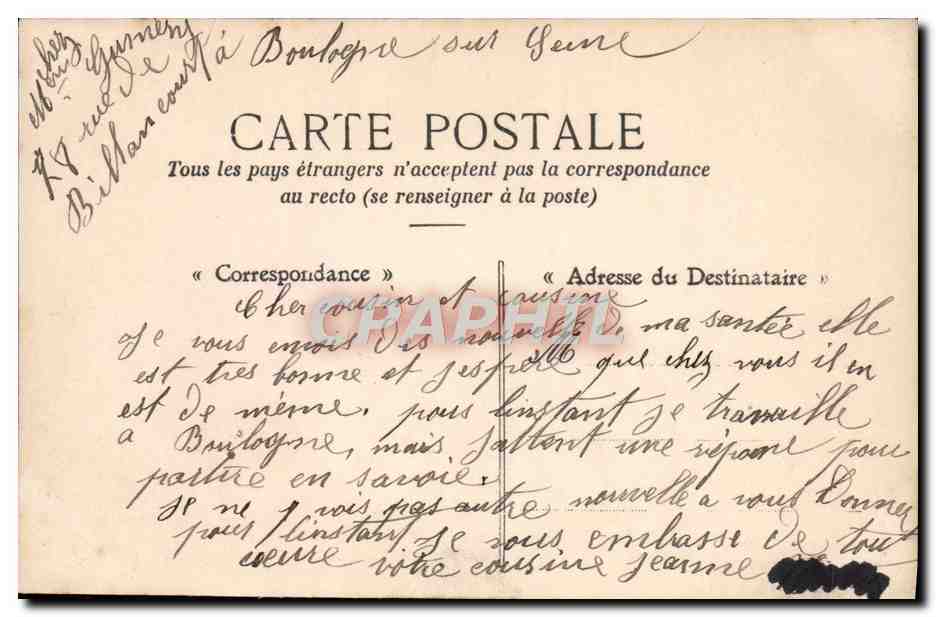 chez
Mme Gumery
78 rue de
Billancourt à Boulogne sur Seine
CARTE POSTALE
Tous les pays étrangers n'acceptent pas la correspondance
au recto (se renseigner à la poste)
« Correspondance »
« Adresse du Destinataire »
Cher cousin et cousine
Je vous envois des nouvelle de ma santée elle
est tres bonne et jespere que chez vous il en
est de même. pour linstant je travaille
a Boulogne, mais jattent une réponse pour
partire en savoie.
je ne vois pas autre nouvelle a vous Donner
pour linstant je vous embrasse de tout
coeure votre cousine jeanne
CRAPHIL